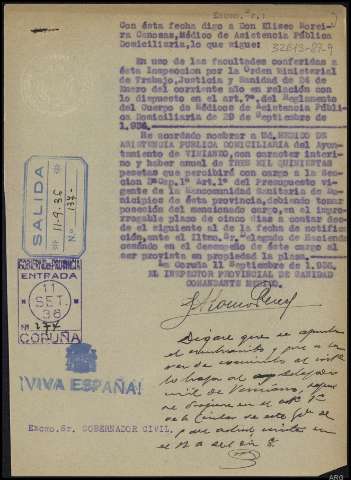 Excmo. Sr.:
Con ésta fecha digo a Don Eliseo Morei-
ra Canosas, Médico de Asistencia Pública
Domiciliaria, lo que sigue:
32613-87-9
En uso de las facultades conferidas a
ésta Inspección por la Orden Ministerial
de Trabajo, Justicia y Sanidad de 24 de
Enero del corriente año en relación con
lo dispuesto en el art. 7º, del Reglamento
del Cuerpo de Médicos de Asistencia Públi-
ca Domiciliaria de 29 de Septiembre de
1.934.
He acordado nombrar a Ud. MEDICO DE
ASISTENCIA PUBLICA DOMICILIARIA del Ayun-
tamiento de VIMIANZO, con caracter interi-
no y haber anual de TRES MIL QUINIENTAS
pesetas que percibirá con cargo a la Sec-
ción 2ª Cap. 1º Art. 1º del Presupuesto vi-
gente de la Mancomunidad Sanitaria de Mu-
nicipios de ésta provincia, debiendo tomar
posesión del mencionado cargo, en el impro-
rrogable plazo de cinco dias a contar desde
el siguiente al de la fecha de notifica-
ción, ante el Iltmo. Sr. Delegado de Hacienda
cesando en el desempeño de éste cargo al
ser provista en propiedad la plaza.
La Coruña 11 Septiembre de 1.936.
EL INSPECTOR PROVINCIAL DE SANIDAD
COMANDANTE MEDICO.
SALIDA
11-9-36
N.º 137-
GOBIERNO de PROVINCIA
ENTRADA
11
SET.
36
Nº 277
CORUÑA
¡VIVA ESPAÑA!
Digase que se
el nombramiento y que a
de
trabajo al Delegado
civil de Vimianzo,
en el art. 9º
de la Circular de este
Excmo. Sr. GOBERNADOR CIVIL.
ARG